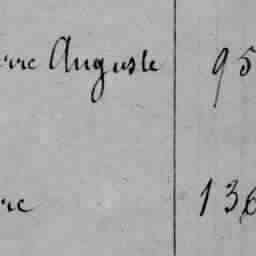 rre Auguste 95
re 136